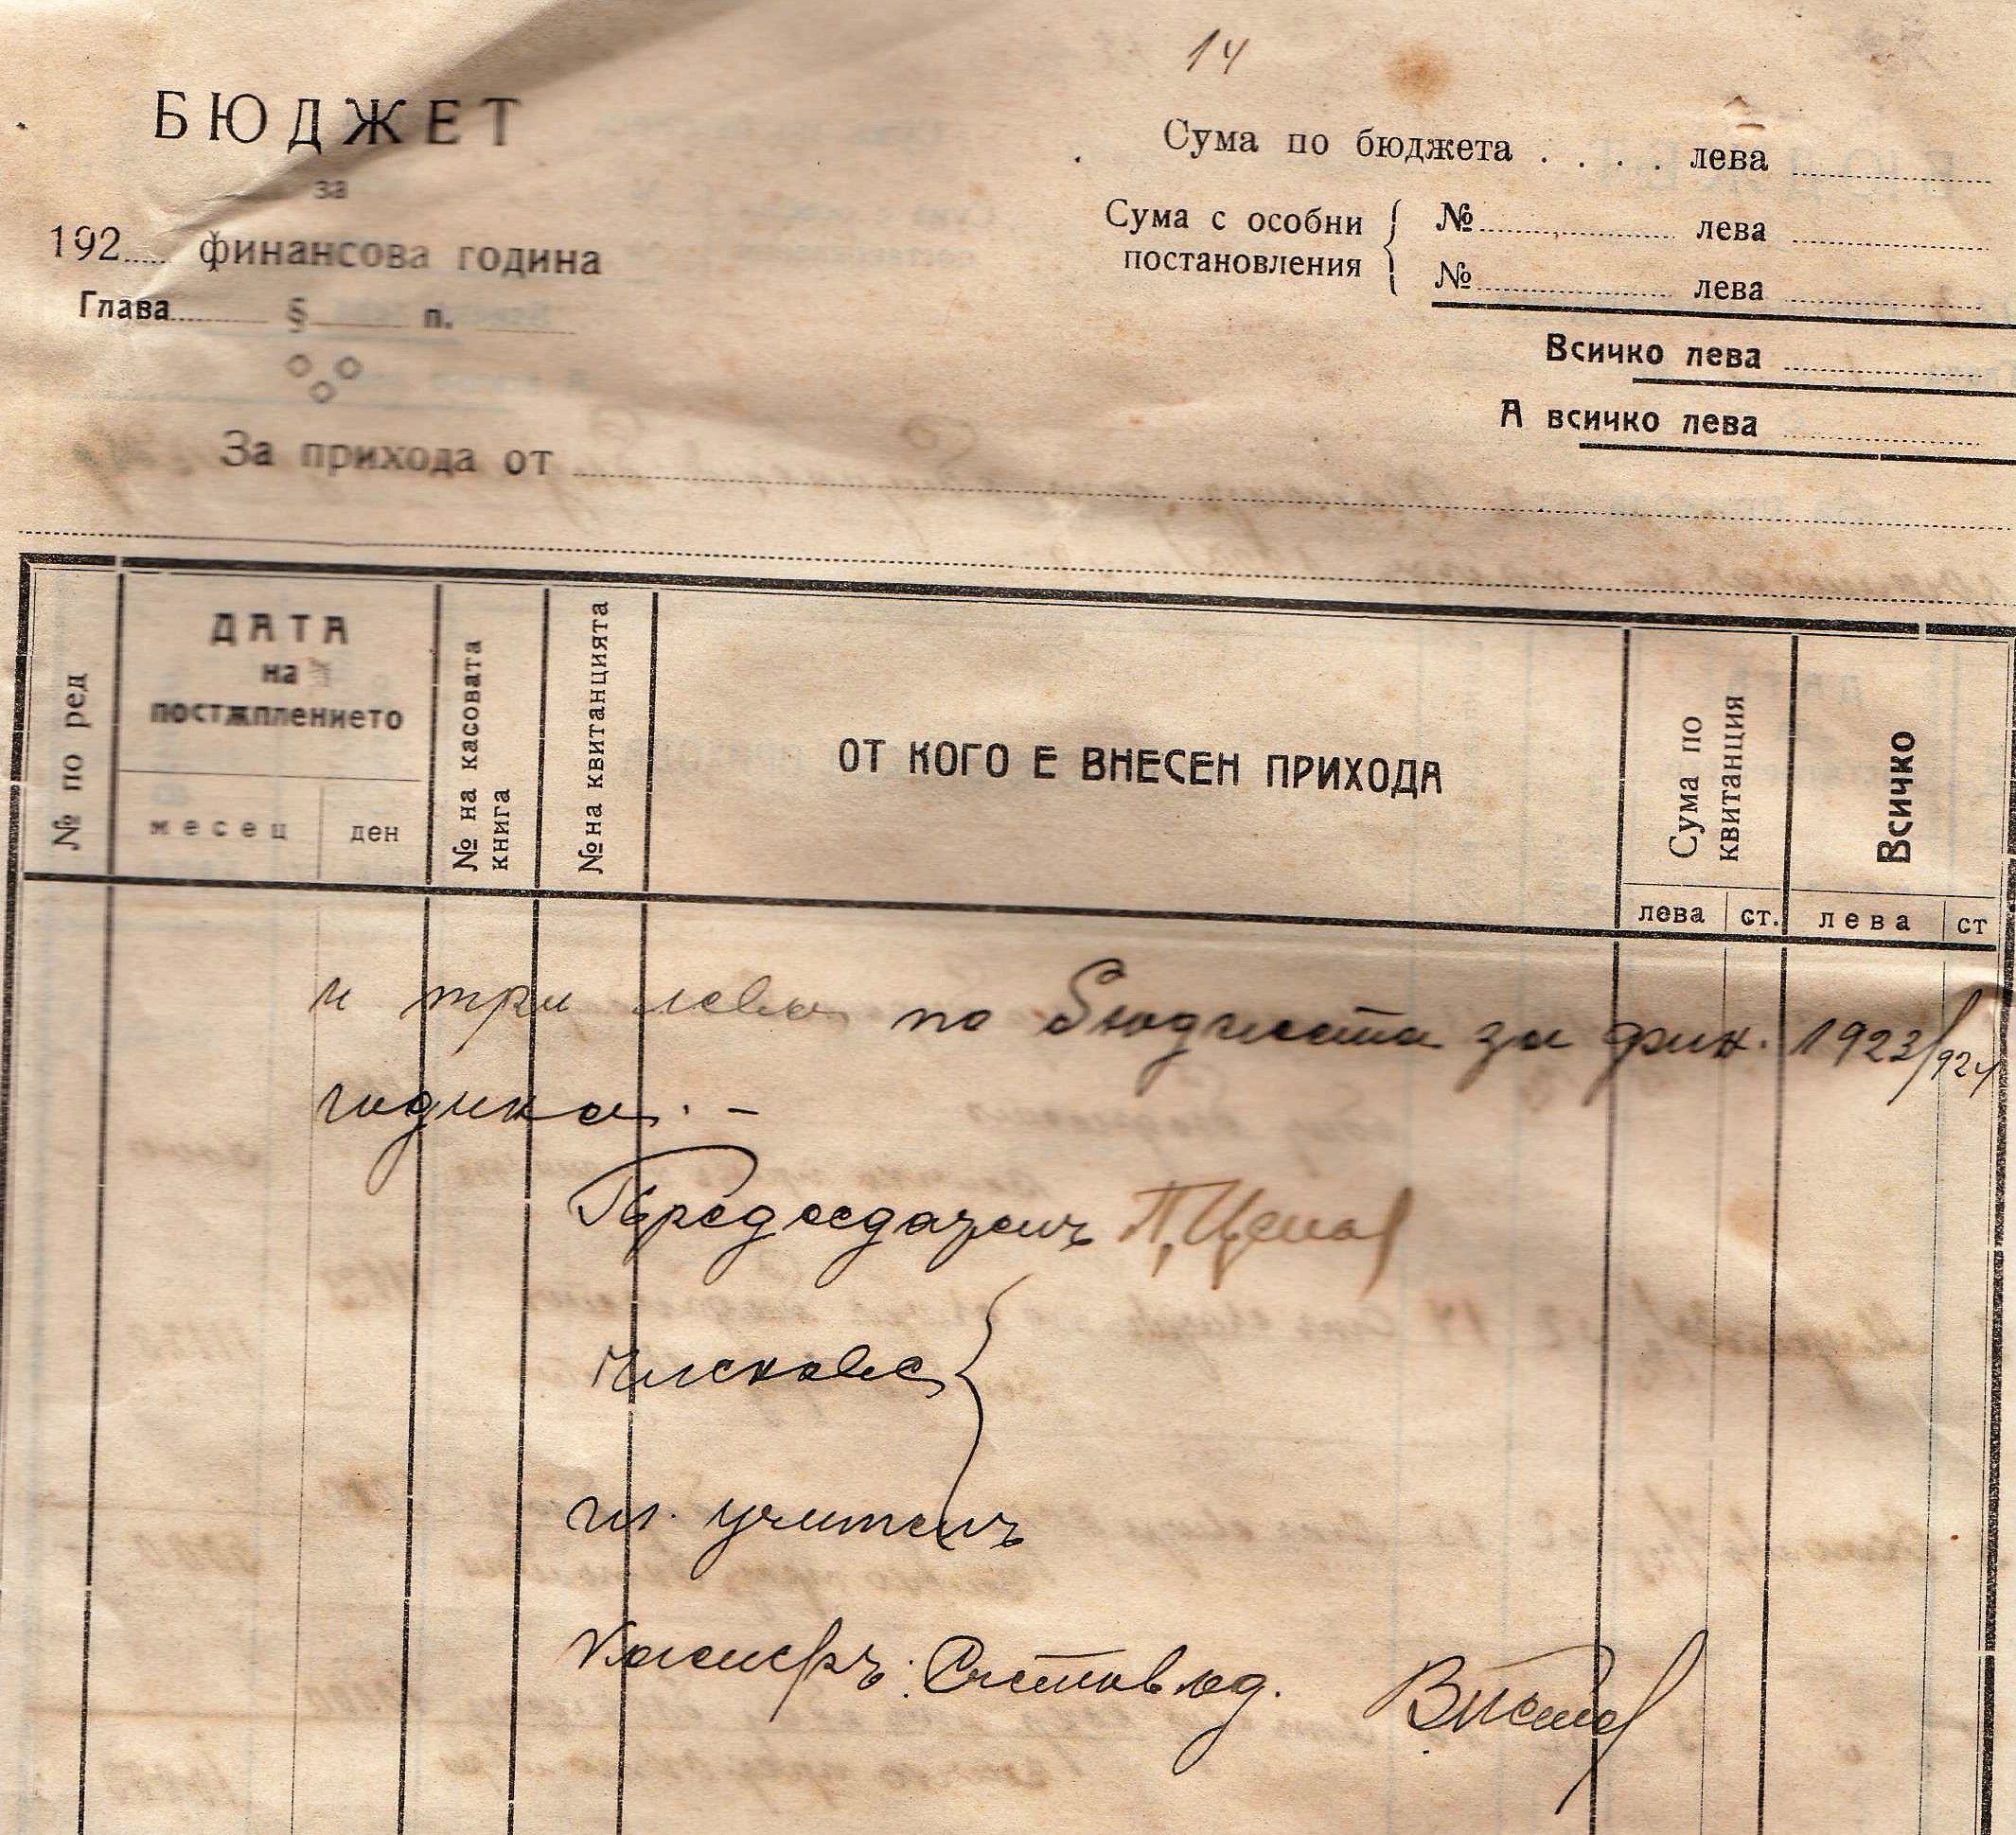 14
БЮДЖЕТ
за
192..... финансова година
Глава.......... § .......... п.
Сума по бюджета . . . . лева
Сума с особни постановления { № лева
№ лева
Всичко лева
А всичко лева
За прихода от
№ по ред
ДАТА
на
постѫплението
месец
ден
№ на касовата книга
№ на квитанцията
ОТ КОГО Е ВНЕСЕН ПРИХОДА
Сума по квитанция
лева ст.
Всичко
лева ст
и три лева по бюджета за фин. 1923/924
година. –
Председатель П. Цен
Членове {
гл. учитель
Касиеръ: Счетовод.